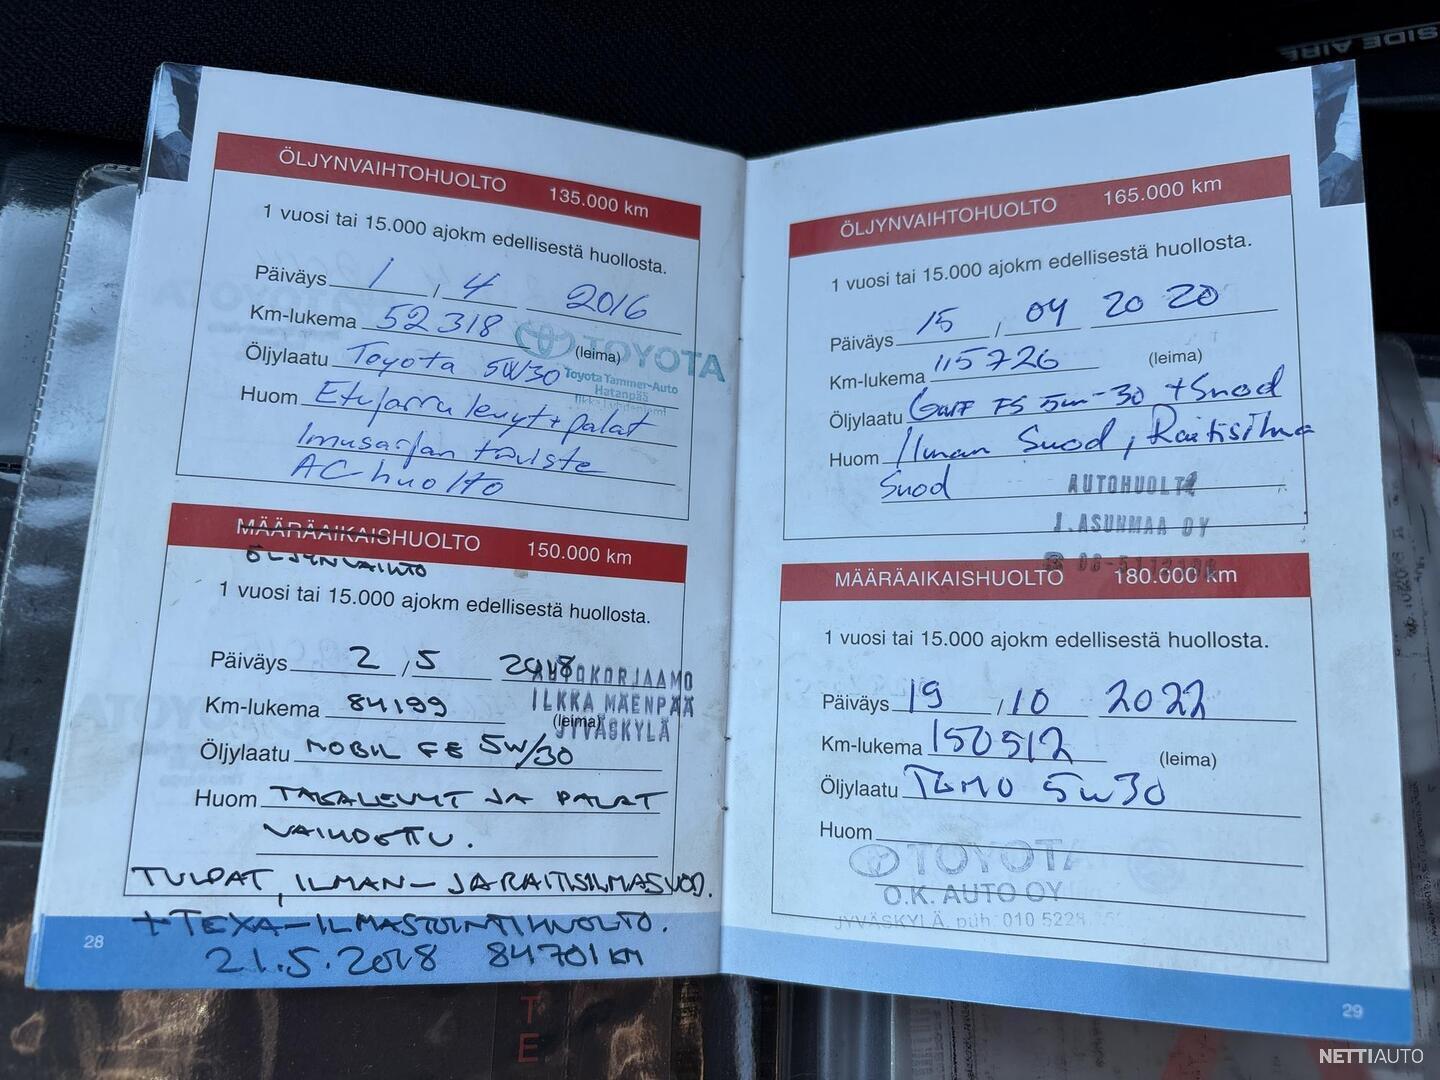 SIDE AIR
ÖLJYNVAIHTOHUOLTO 135.000 km
1 vuosi tai 15.000 ajokm edellisestä huollosta.
Päiväys 1 , 4 2016
Km-lukema 52 318 (leima)
TOYOTA
Öljylaatu Toyota 5W30
Toyota Tammer-Auto
Hatanpää
Huom Etujarru levyt + palat
Imusarjan tiiviste
AC huolto
MÄÄRÄAIKAISHUOLTO 150.000 km
ÖLJYNVAIHTO
1 vuosi tai 15.000 ajokm edellisestä huollosta.
Päiväys 2 / 5 2018
AUTOKORJAAMO
ILKKA MÄENPÄÄ
JYVÄSKYLÄ
Km-lukema 84199 (leima)
Öljylaatu MOBIL FE 5W/30
Huom TAKALEVYT JA PALAT
VAIHDETTU.
TULPAT, ILMAN- JA RAITISILMASUOD.
+ TEXA-ILMASTOINTIHUOLTO.
21.5.2018 84701 KM
28
ÖLJYNVAIHTOHUOLTO 165.000 km
1 vuosi tai 15.000 ajokm edellisestä huollosta.
Päiväys 15 / 04 20 20
Km-lukema 115726 (leima)
Öljylaatu Gulf FS 5w-30 + Suod
Huom Ilman Suod, Raitisilma
Suod
AUTOHUOLTO
J. ASUNMAA OY
MÄÄRÄAIKAISHUOLTO 180.000 km
1 vuosi tai 15.000 ajokm edellisestä huollosta.
Päiväys 19 / 10 2022
Km-lukema 150512 (leima)
Öljylaatu 5W30
Huom
TOYOTA
O.K. AUTO OY
JYVÄSKYLÄ, puh. 010 5228
29
TE
NETTIAUTO